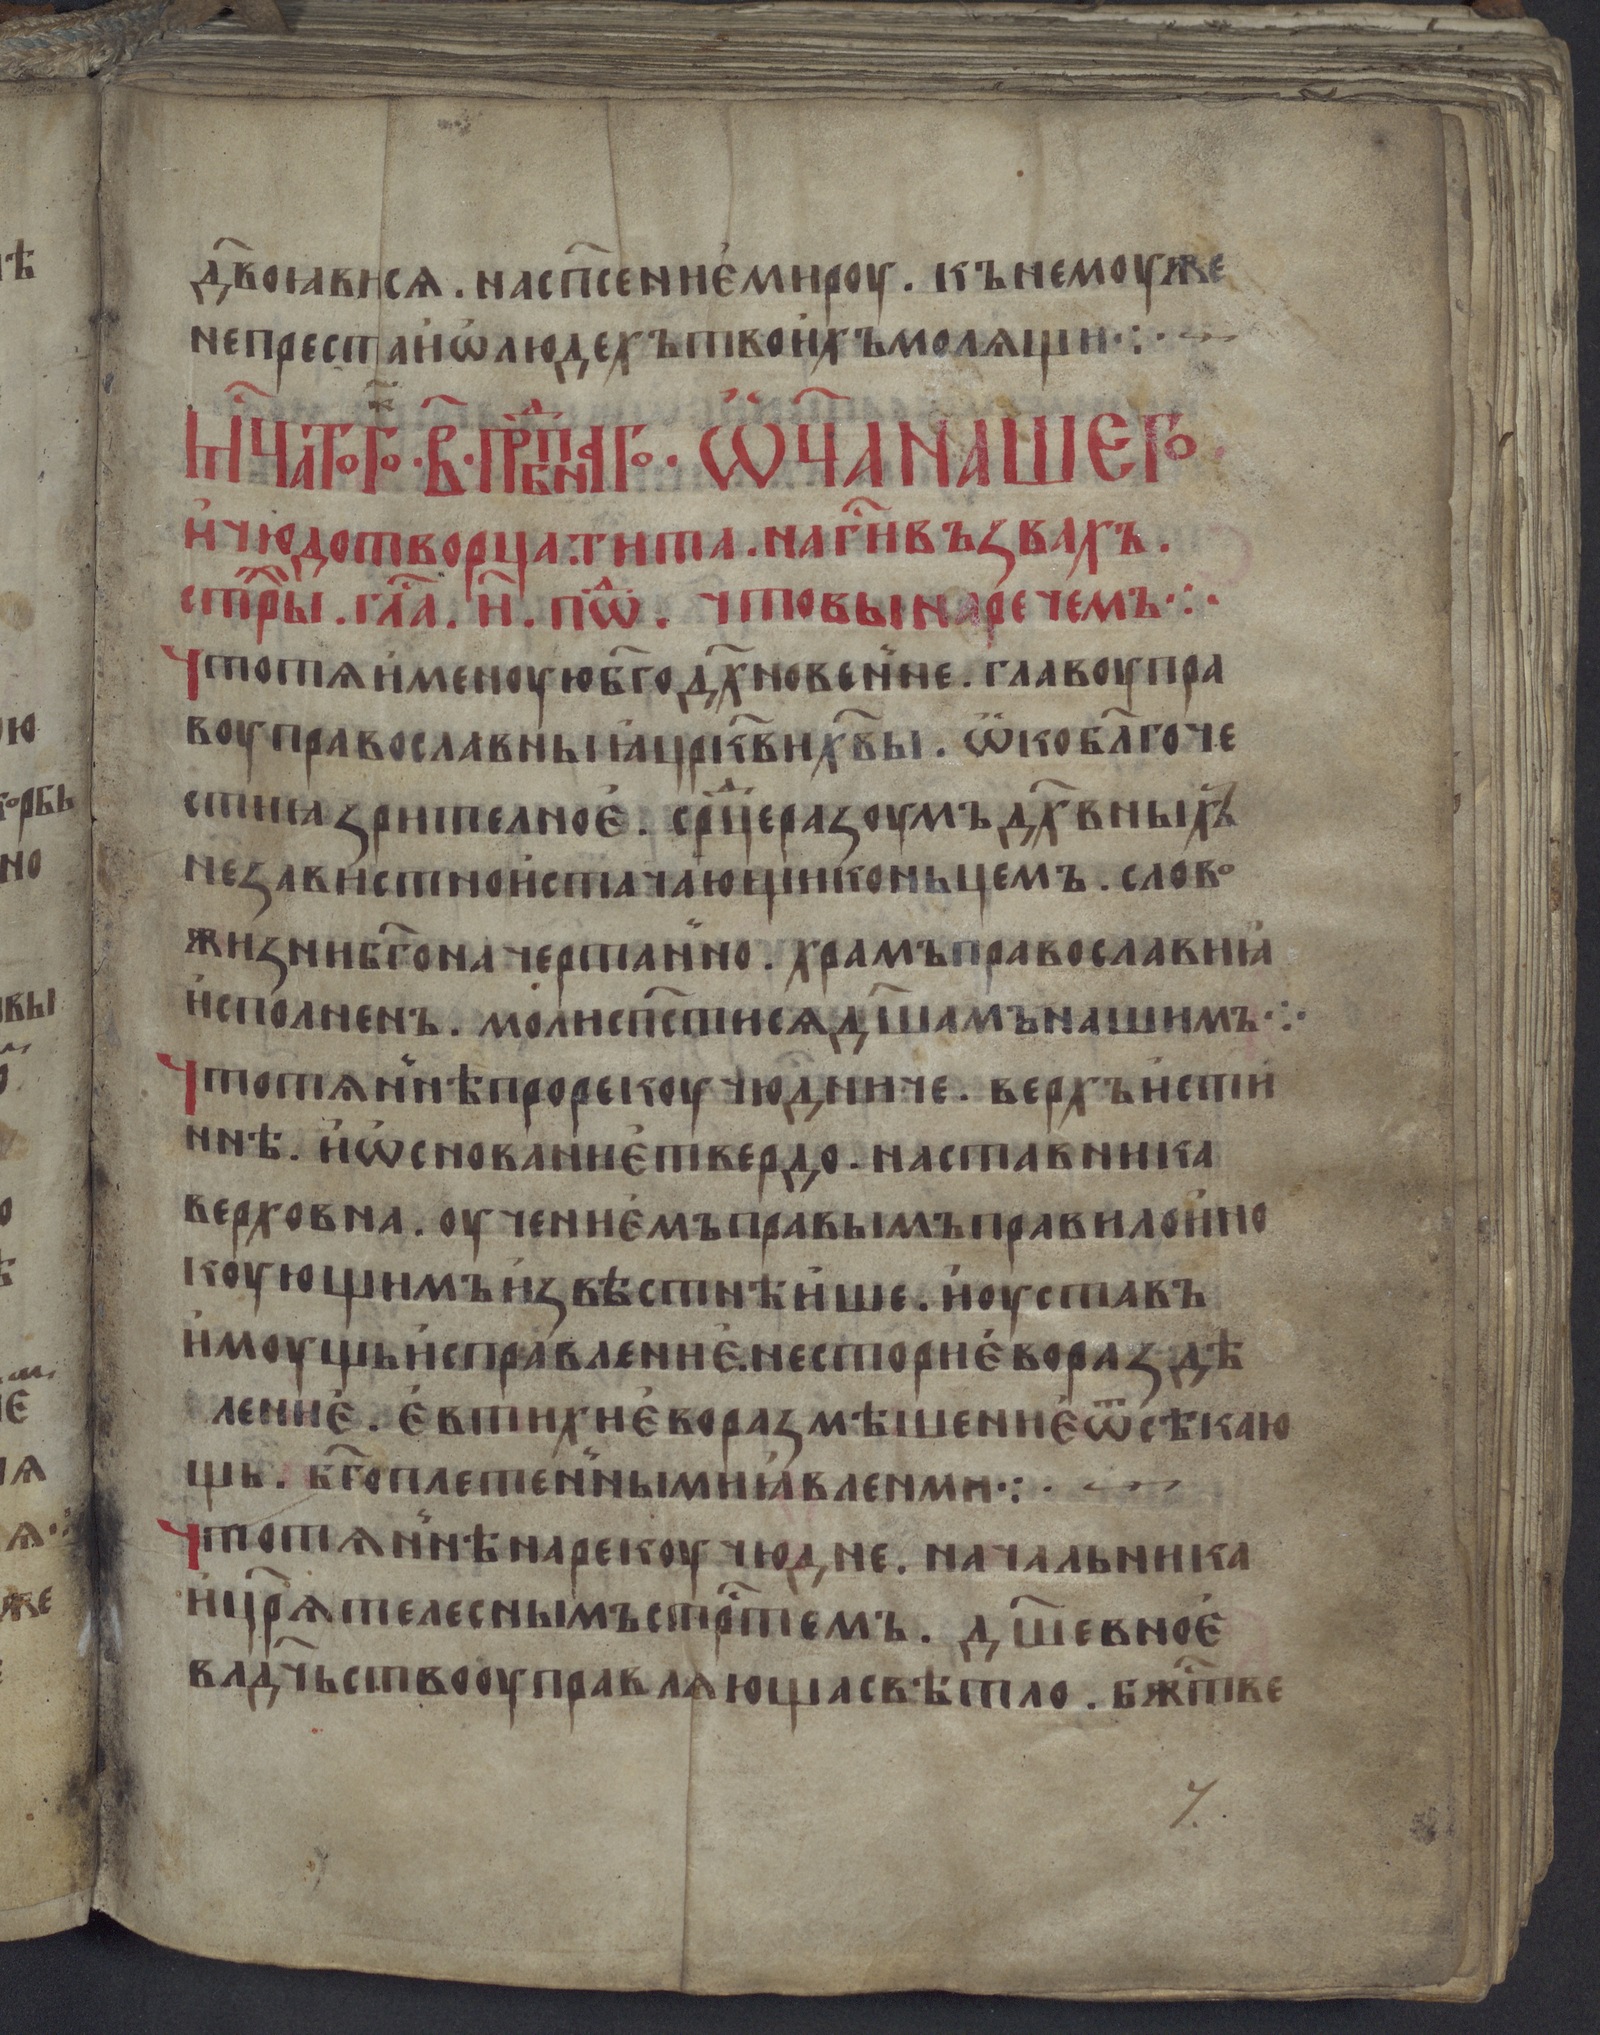 д҃вою ависѧ . насп҃сенниє мироу . къ немоуже
непрестаи ѡ людехъ твоихъ молѧщи ·:·
м҃цѧ тогоⷤ · в҃ · прпⷣбнаго · ѿца нашего
и чюдотворца . тита . на г҃и възвахъ .
ст҃ры . гла҃ . и҃ . пѡⷣ . что вы наречемъ ·:·
Что тѧ именоую б҃годх҃новение . главоу пра
воу православныıа црк҃ви х҃вы . ѡко бл҃гоче
стиıа зрителноє . срⷣце разоумъ дх҃вныхъ
независтно истачающи коньцемъ . слово
жизни б҃гоначертанно . храмъ православиıа
исполненъ . моли сп҃стисѧ дш҃амъ нашимъ ·:·
Что тѧ н҃нѣ прорекоу чюд҃ниче . верхъ исти
ннѣ . и ѡснованиє твердо . наставника
верховна . оучениємъ правымъ правило ино
коующимъ извѣстнѣише . и оуставъ
имоущь исправлениє . несториєво раздѣ
лениє . євтихиєво размѣшениє ѿсѣкаю
щь . б҃гоплетенными ıавленми ·:·
Что тѧ н҃нѣ нарекоу чюдне . начальника
и цр҃ѧ телеснымъ стр҃темъ . дш҃евноє
влад҃чьство оуправлѧюща свѣтло . бжⷭ҇тве